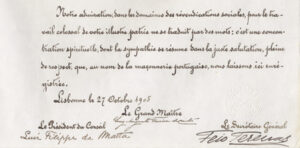 Notre admiration, dans les domaines des révendications sociales, pour le tra-
vail colossal de votre illustre patrie ne se traduit par des mots; c'est une concen-
tration spirituelle, dont la sympathie se résume dans la juste salutation, pleine
de respect, que, au nom de la maçonnerie portugaise, nous laissons ici enré-
gistrée.
Lisbonne le 27 Octobre 1905
Le Grand Maître
Le Président du Conseil
Le Secrétaire Général
Luiz Filippe da Matta